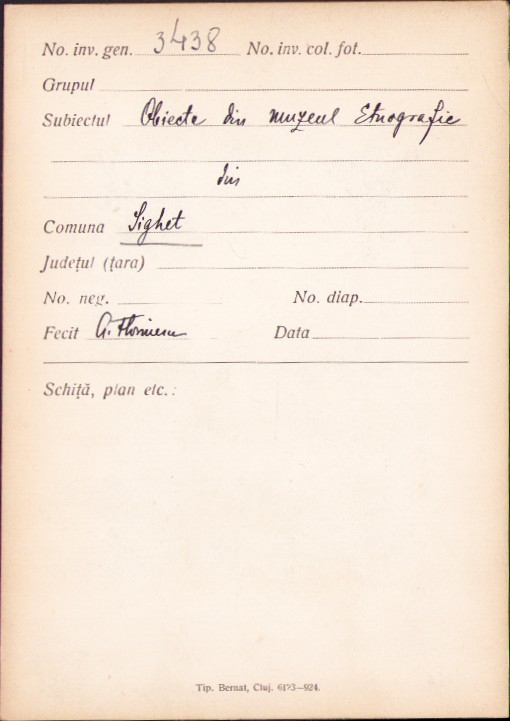 No. inv. gen. 3438 No. inv. col. fot.
Grupul
Subiectul Obiecte din muzeul Etnografic
din
Comuna Sighet
Județul (țara)
No. neg. No. diap.
Fecit Data
Schiță, plan etc.:
Tip. Bernat, Cluj. 6123—924.